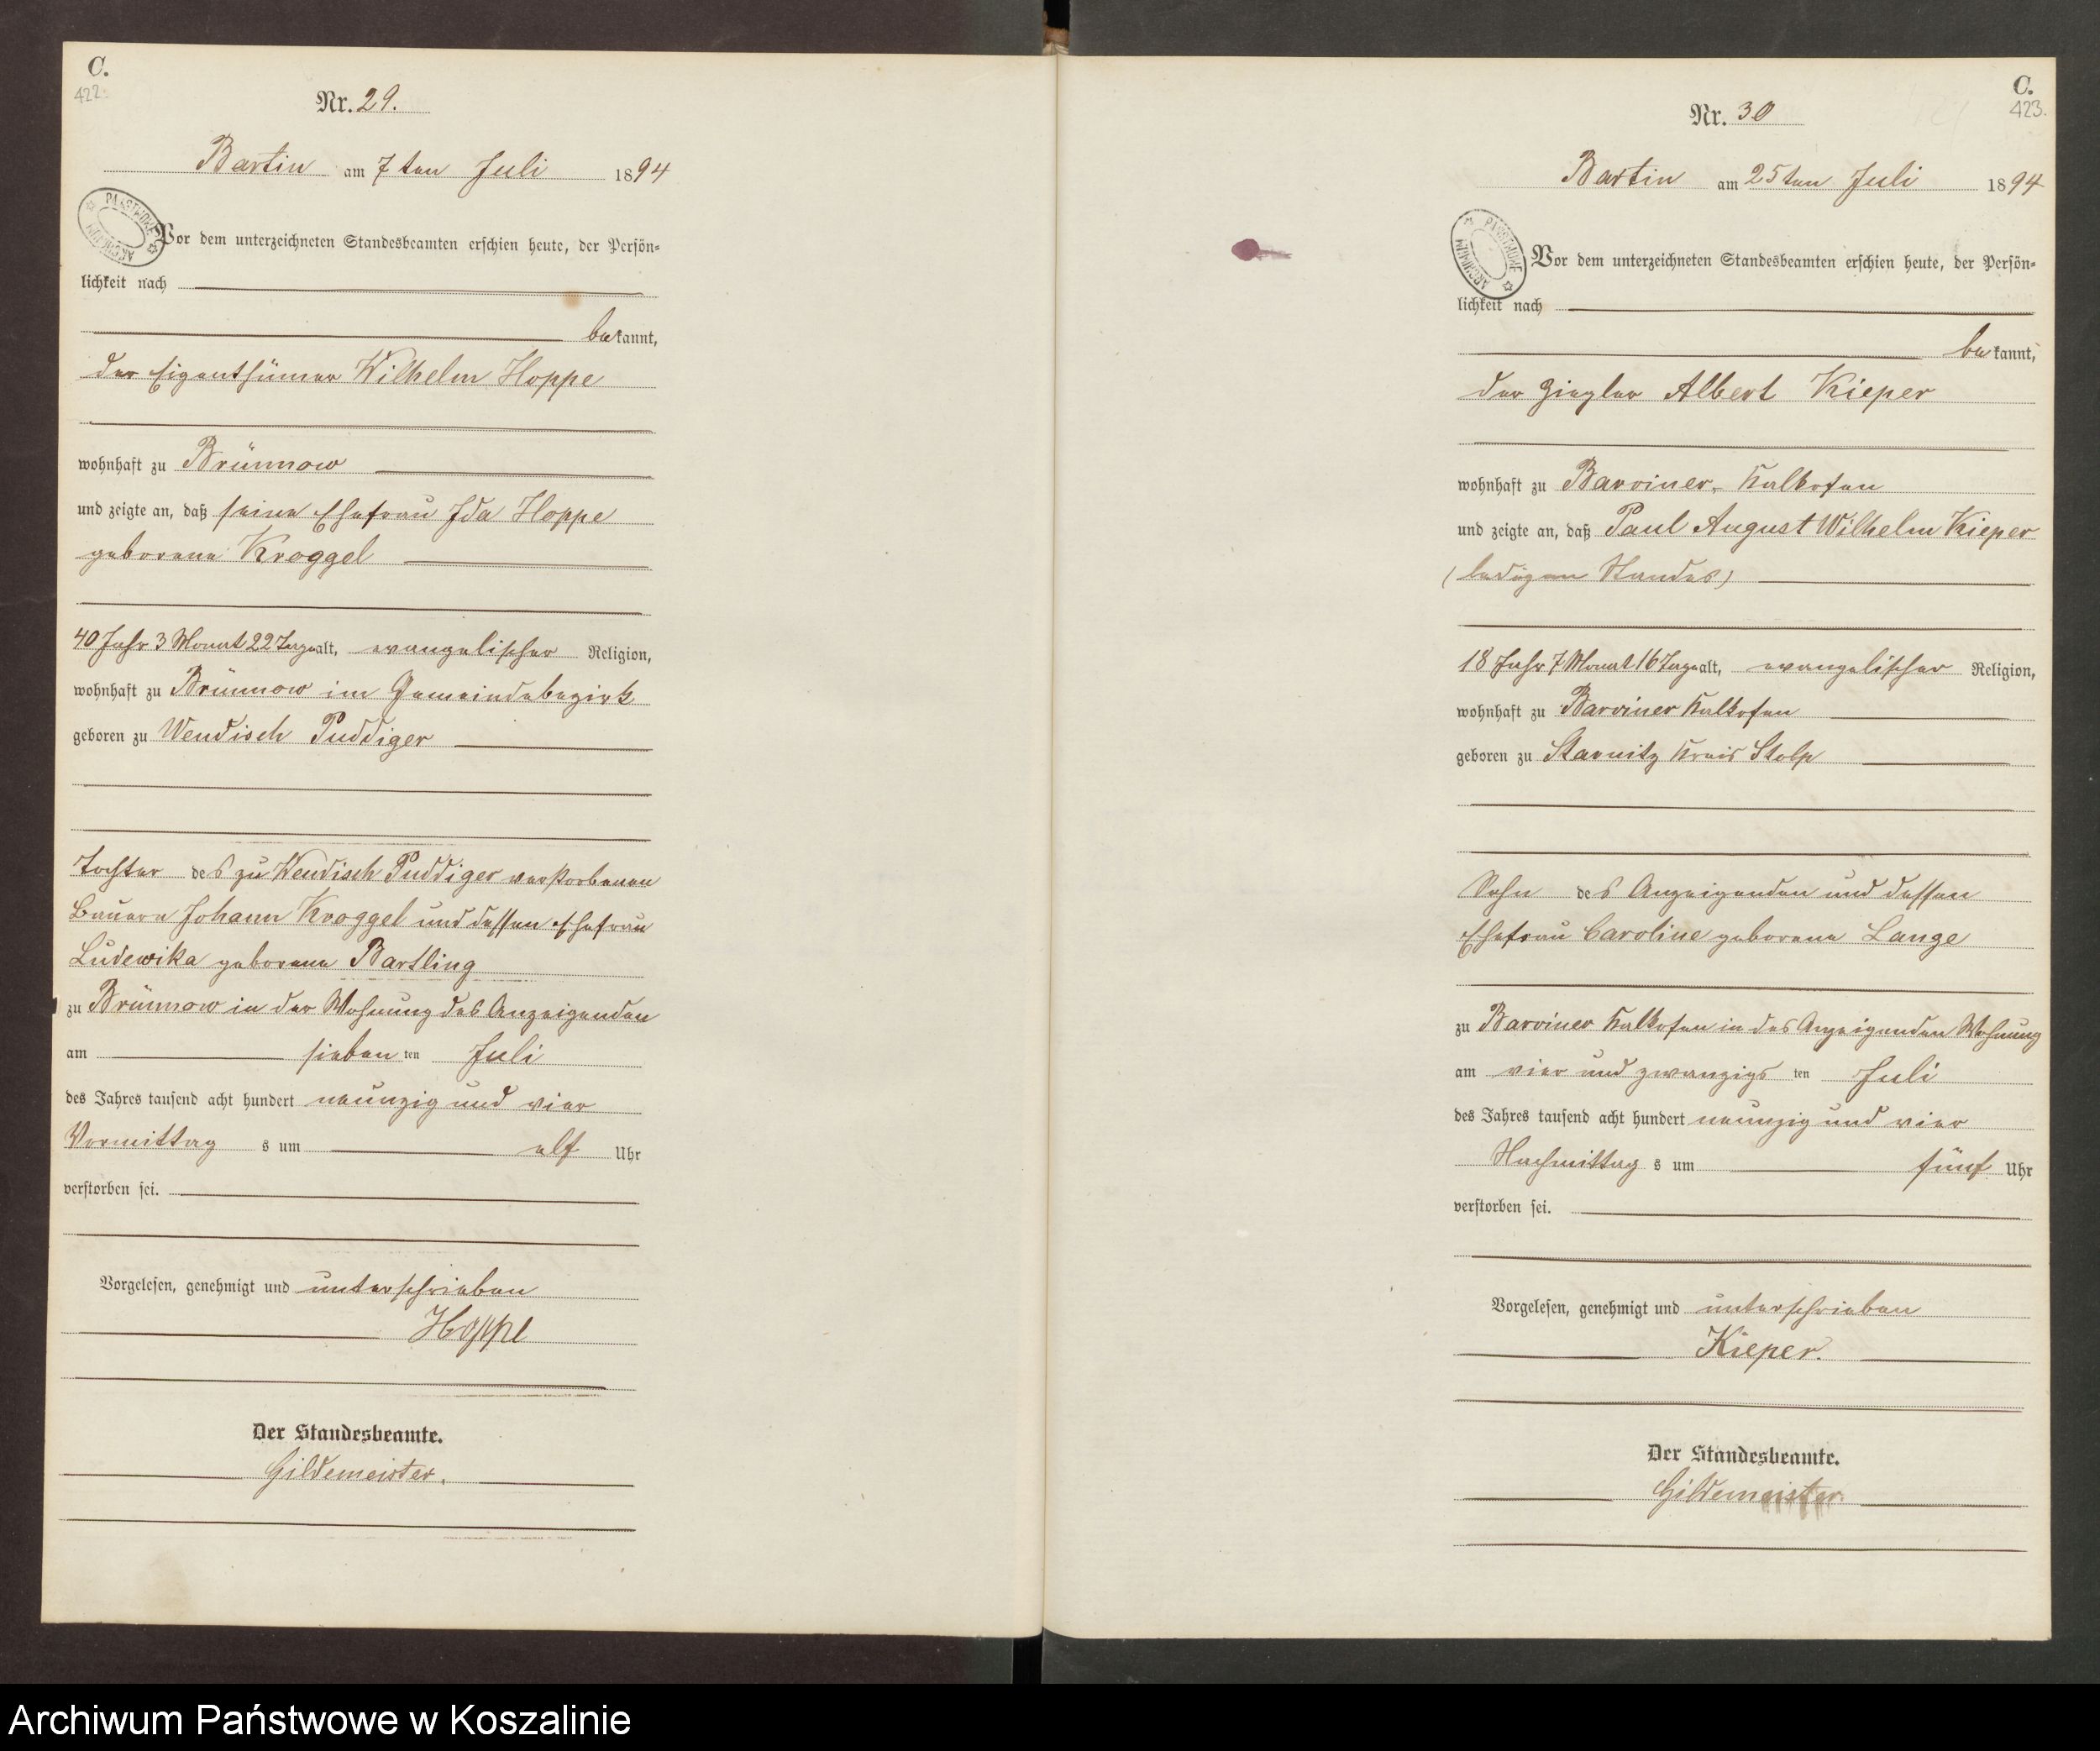 C.
422.
Nr. 29.
Bartin am 7ten Juli 1894
Vor dem unterzeichneten Standesbeamten erschien heute, der Persön-
lichkeit nach
bekannt,
der Eigenthümer Wilhelm Hoppe
wohnhaft zu Brünnow
und zeigte an, daß seine Ehefrau Ida Hoppe
geborene Kroggel
40 Jahr 3 Monat 22 Tage alt, evangelischer Religion,
wohnhaft zu Brünnow im Gemeindebezirk
geboren zu Wendisch Puddiger
Tochter des zu Wendisch Puddiger verstorbenen
Bauern Johann Kroggel und dessen Ehefrau
Ludewika geborene Bartling
zu Brünnow in der Wohnung des Anzeigenden
am sieben ten Juli
des Jahres tausend acht hundert neunzig und vier
Vormittag s um elf Uhr
verstorben sei.
Vorgelesen, genehmigt und unterschrieben
Hoppe
Der Standesbeamte.
Gildemeister.
C.
423.
Nr. 30
Bartin am 25ten Juli 1894
Vor dem unterzeichneten Standesbeamten erschien heute, der Persön-
lichkeit nach
bekannt,
der Ziegler Albert Kieper
wohnhaft zu Barviner Kalkofen
und zeigte an, daß Paul August Wilhelm Kieper
(ledigen Standes)
18 Jahr 7 Monat 16 Tage alt, evangelischer Religion,
wohnhaft zu Barviner Kalkofen
geboren zu Starnitz Kreis Stolp
Sohn des Anzeigenden und dessen
Ehefrau Caroline geborene Lange
zu Barviner Kalkofen in des Anzeigenden Wohnung
am vier und zwanzigs ten Juli
des Jahres tausend acht hundert neunzig und vier
Nachmittag s um fünf Uhr
verstorben sei.
Vorgelesen, genehmigt und unterschrieben
Kieper.
Der Standesbeamte.
Gildemeister.
Archiwum Państwowe w Koszalinie